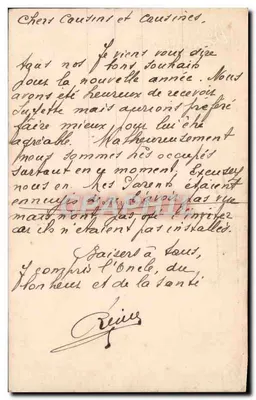 Chers Cousins et Cousines,
Je viens vous dire
tous nos bons souhaits
pour la nouvelle année. Nous
avons été heureux de recevoir
mais aurions préféré
faire mieux pour lui être
agréable. Malheureusement
nous sommes très occupés
surtout en ce moment, Excusez
nous en. Mes Parents étaient
ennuyés de pas
mais ont pas
car ils n'étaient pas installés.
Baisers à tous,
y compris l'Oncle, du
bonheur et de la santé